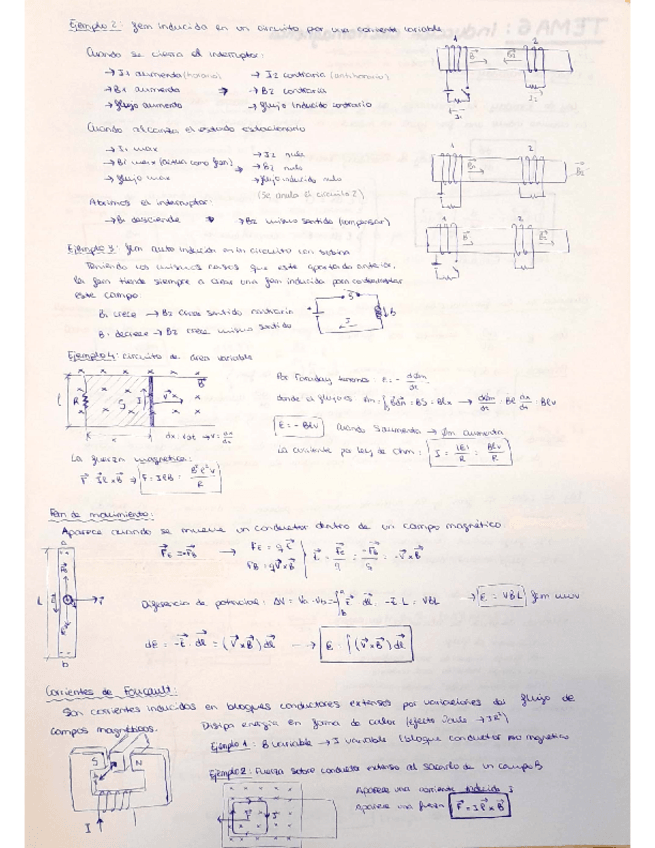 Ejemplo 2: fem inducida en un circuito por una corriente variable
Cuando se cierra el interruptor:
→ I1 aumenta (horario) → I2 contraria (antihorario)
→ B1 aumenta → → B2 contraria
→ flujo aumenta → flujo inducido contrario
Cuando alcanza el estado estacionario
→ I1 max → I2 nula
→ B1 max → B2 nulo
→ flujo max → flujo inducido nulo
(se anula el circuito 2)
Abrimos el interruptor:
→ B1 desciende → → B2 mismo sentido (compensar)
Ejemplo 3: fem auto inducida en un circuito con bobina
Teniendo los mismos casos que este apartado anterior,
la fem tiende siempre a crear una fem inducida para contrarrestar
este campo.
B1 crece → B2 crea sentido contrario
B1 decrece → B2 crece mismo sentido
Ejemplo 4: circuito de área variable
Por Faraday tenemos ε = - dΦm/dt
donde el flujo es Φm = ∫ B dA = BS = Blx → dΦm/dt = Bl dx/dt = Blv
ε = -Blv Cuando S aumenta → Φm aumenta
La corriente por ley de Ohm: I = |ε|/R = Blv/R
dx = v dt → v = dx/dt
La fuerza magnética:
F = Il x B ⇒ F = IlB = B² l² v / R
Fem de movimiento:
Aparece cuando se mueve un conductor dentro de un campo magnético.
FE = -FB → FE = qE
FB = qv x B E = FE/q = -FB/q = -v x B
Diferencia de potencial: ΔV = Va - Vb = -∫ E dl = -E L = VBL → ε = VBL fem mov
dε = -E · dl = (v x B) dl → ε = ∫ (v x B) dl
Corrientes de Foucault:
Son corrientes inducidos en bloques conductores extensos por variaciones del flujo de
campos magnéticos. Disipa energía en forma de calor (efecto Joule → I R²)
Ejemplo 1: B variable → I variable (bloque conductor no magnético
Ejemplo 2: Fuerza sobre conductor extenso al sacarlo de un campo B
Aparece una corriente inducida I
Aparece una fuerza F = Il x B